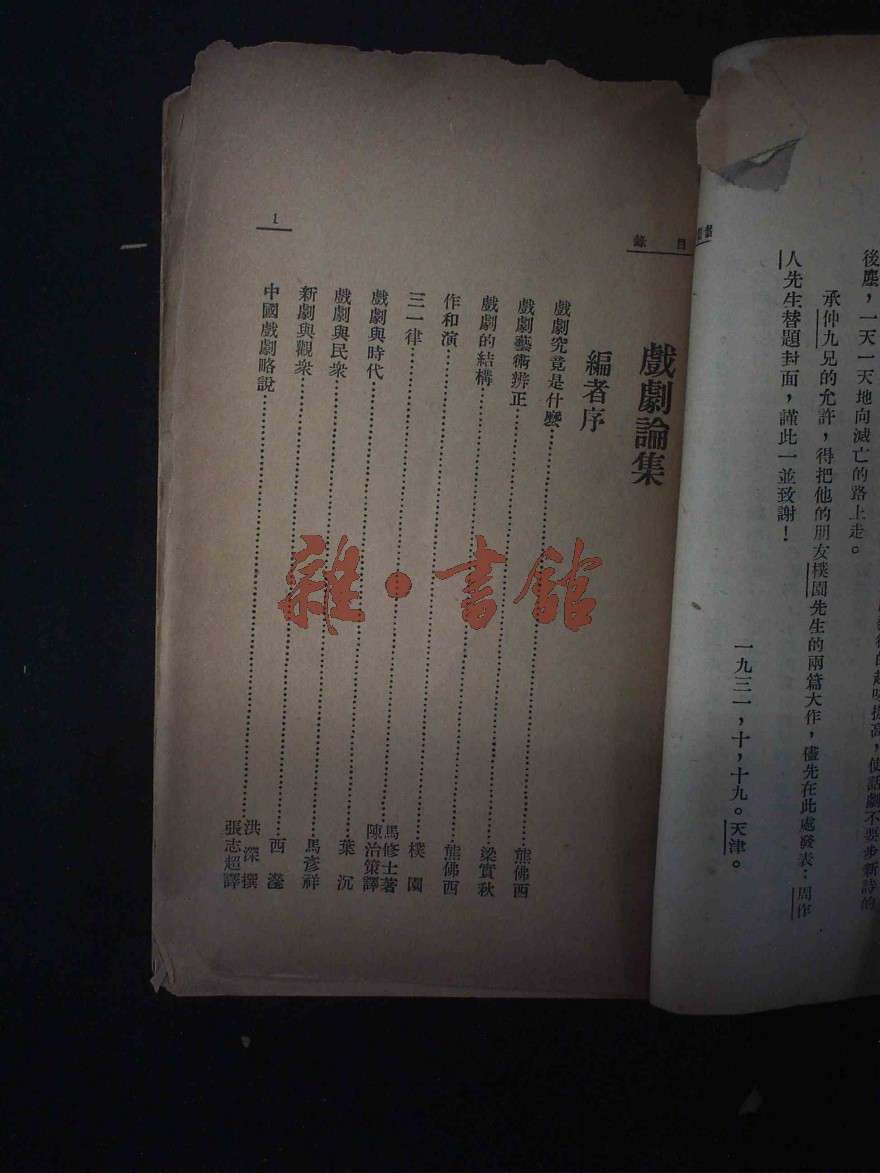 的趣味提高，使話劇不要步新詩的
後塵，一天一天地向滅亡的路上走。
承仲九兄的允許，得把他的朋友樸園先生的兩篇大作，儘先在此處發表：周作
人先生替題封面，謹此一並致謝！
一九三一，十，十九。天津。
目錄
戲劇論集
編者序
戲劇究竟是什麼……熊佛西
戲劇藝術辨正……梁實秋
戲劇的結構……熊佛西
作和演……樸園
三一律……馬修士著 陳治策譯
戲劇與時代……葉沉
戲劇與民眾……馬彥祥
新劇與觀眾……西瀅
中國戲劇略說……洪深撰 張志超譯
1
雜·書館